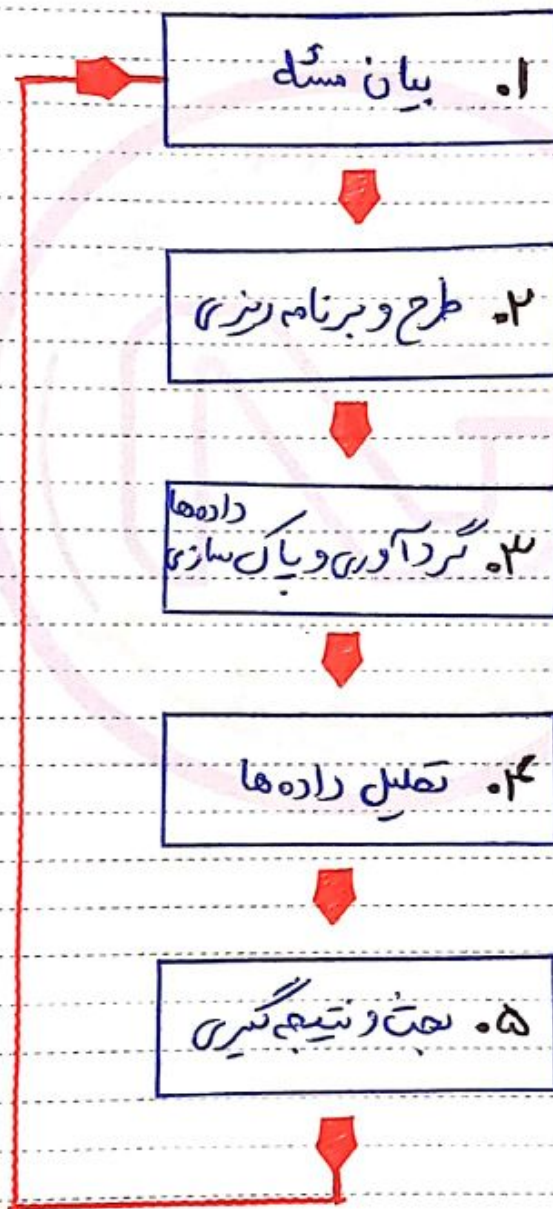 ۱. بیان مسئله
۲. طرح و برنامه ریزی
۳. گردآوری و پاک سازی داده‌ها
۴. تحلیل داده ها
۵. بحث و نتیجه گیری